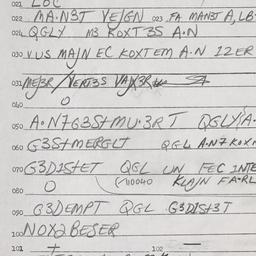 021 LBC
022 MA·N3T YE/GN 023 FA MAN3T A, LB-
024 QGLY M3 ROXT3S A·N
030 VUS MAJN EC KOXTEM A·N 12ER
031 MEJ3R / VERT3S VAJX3R
040 O
050 A·N7G3S+MU·3R T QGLY/A·
060 G3S+MERGLT QGL A·N7KOX
070 G3D1S+ET QGL UN FEC INTE
O (-/10040 KLAJN FA·RL
080
090 G3DEMPT QGL G3D1S+3T
100 NOX2BESER
101 + 102 —